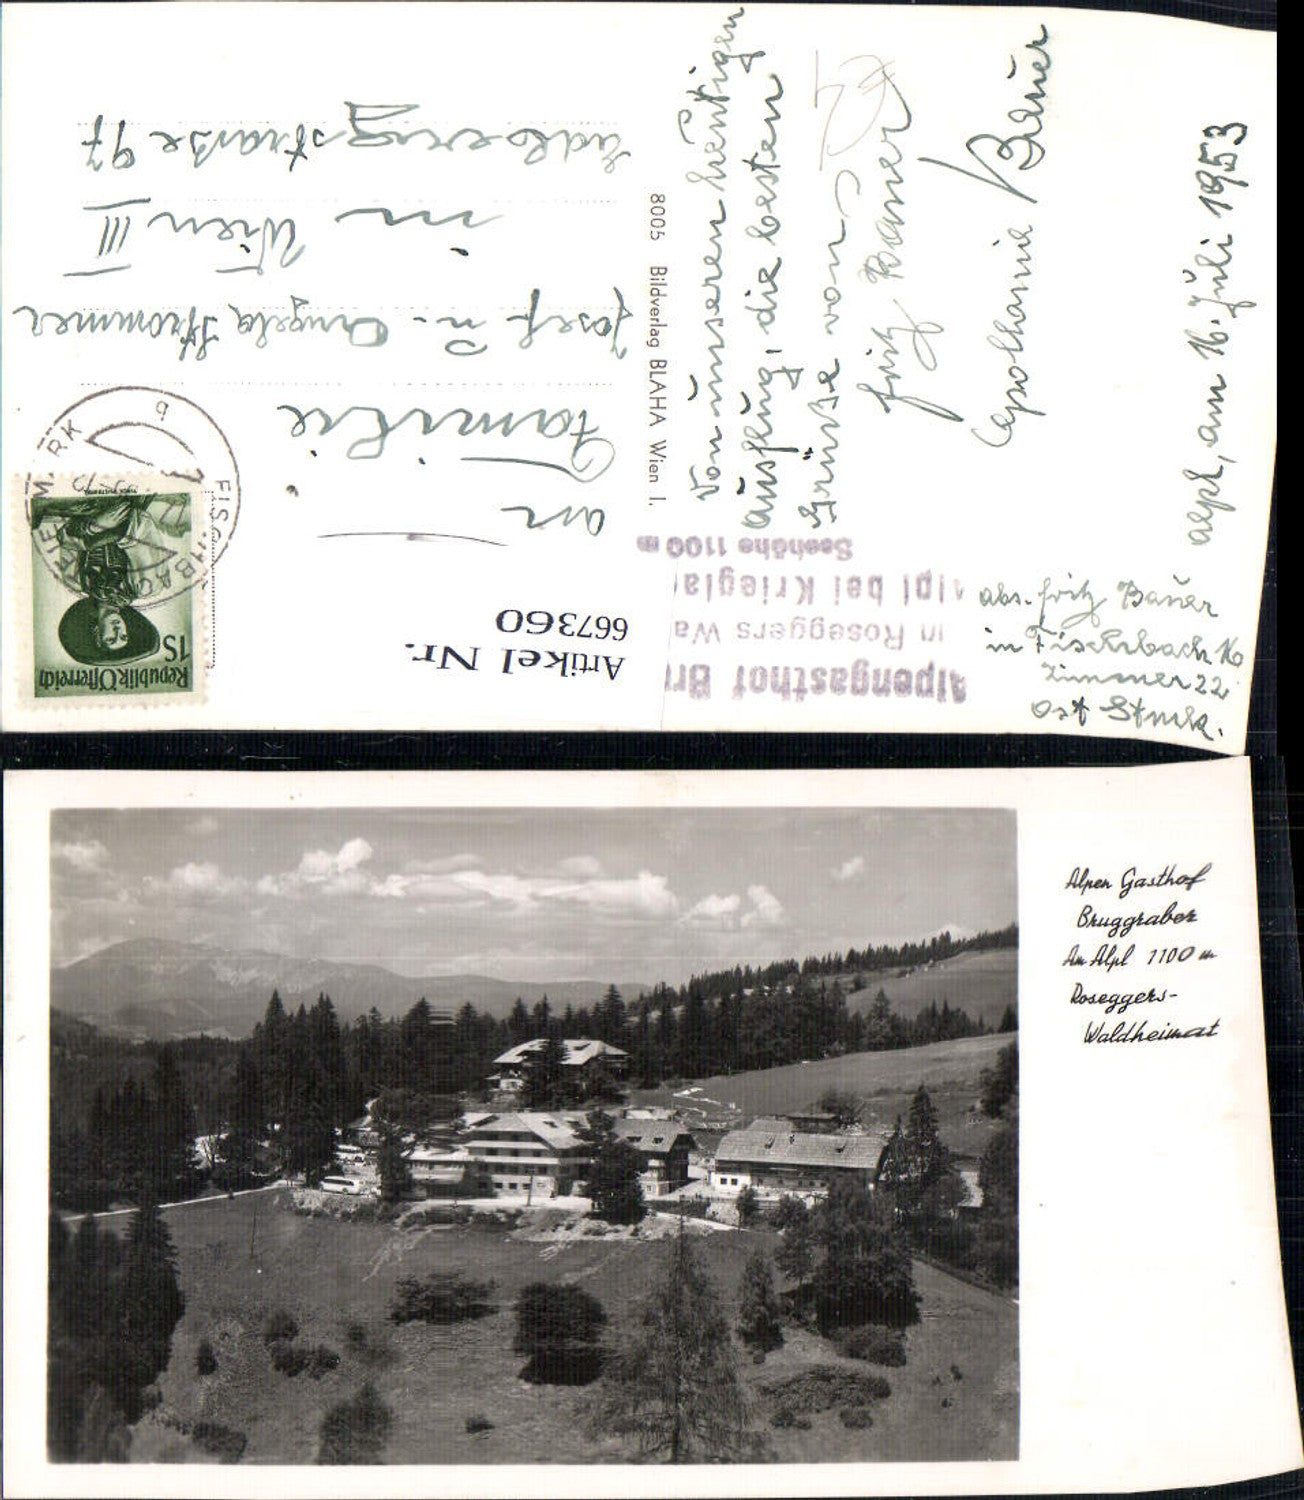 Alpl, am 16. Juli 1953
Von unseren heutigen
Ausflug, die besten
Grüße von
Fritz Bauer
Apollonia Bauer
abs. Fritz Bauer
in Fischbach 16
Zimmer 22
Ost Stmk.
An
Familie
Josef u. Angela Strommer
in Wien III
straße 97
8005 Bildverlag BLAHA Wien I.
Alpengasthof Br
in Roseggers Wa
Alpl bei Krieglac
Seehöhe 1100 m
Artikel Nr.
667360
Republik Österreich
1S
FISCHBACH
STEIERMARK
b
Alpen Gasthof
Bruggraber
Am Alpl 1100 m
Roseggers-
Waldheimat